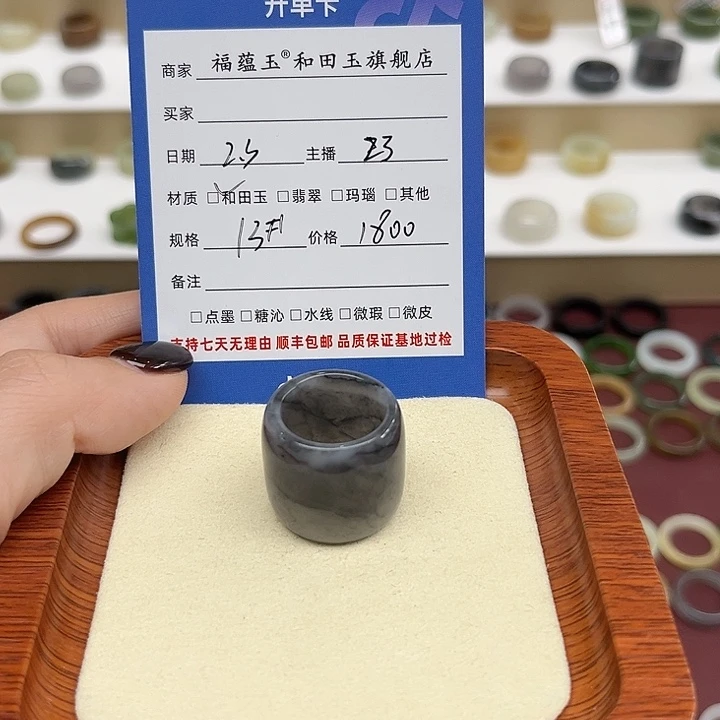 开单卡
商家 福蕴玉®和田玉旗舰店
买家
日期 2.5 主播 Z3
材质 ☑和田玉 □翡翠 □玛瑙 □其他
规格 13# 价格 1800
备注
□点墨 □糖沁 □水线 □微瑕 □微皮
支持七天无理由 顺丰包邮 品质保证基地过检